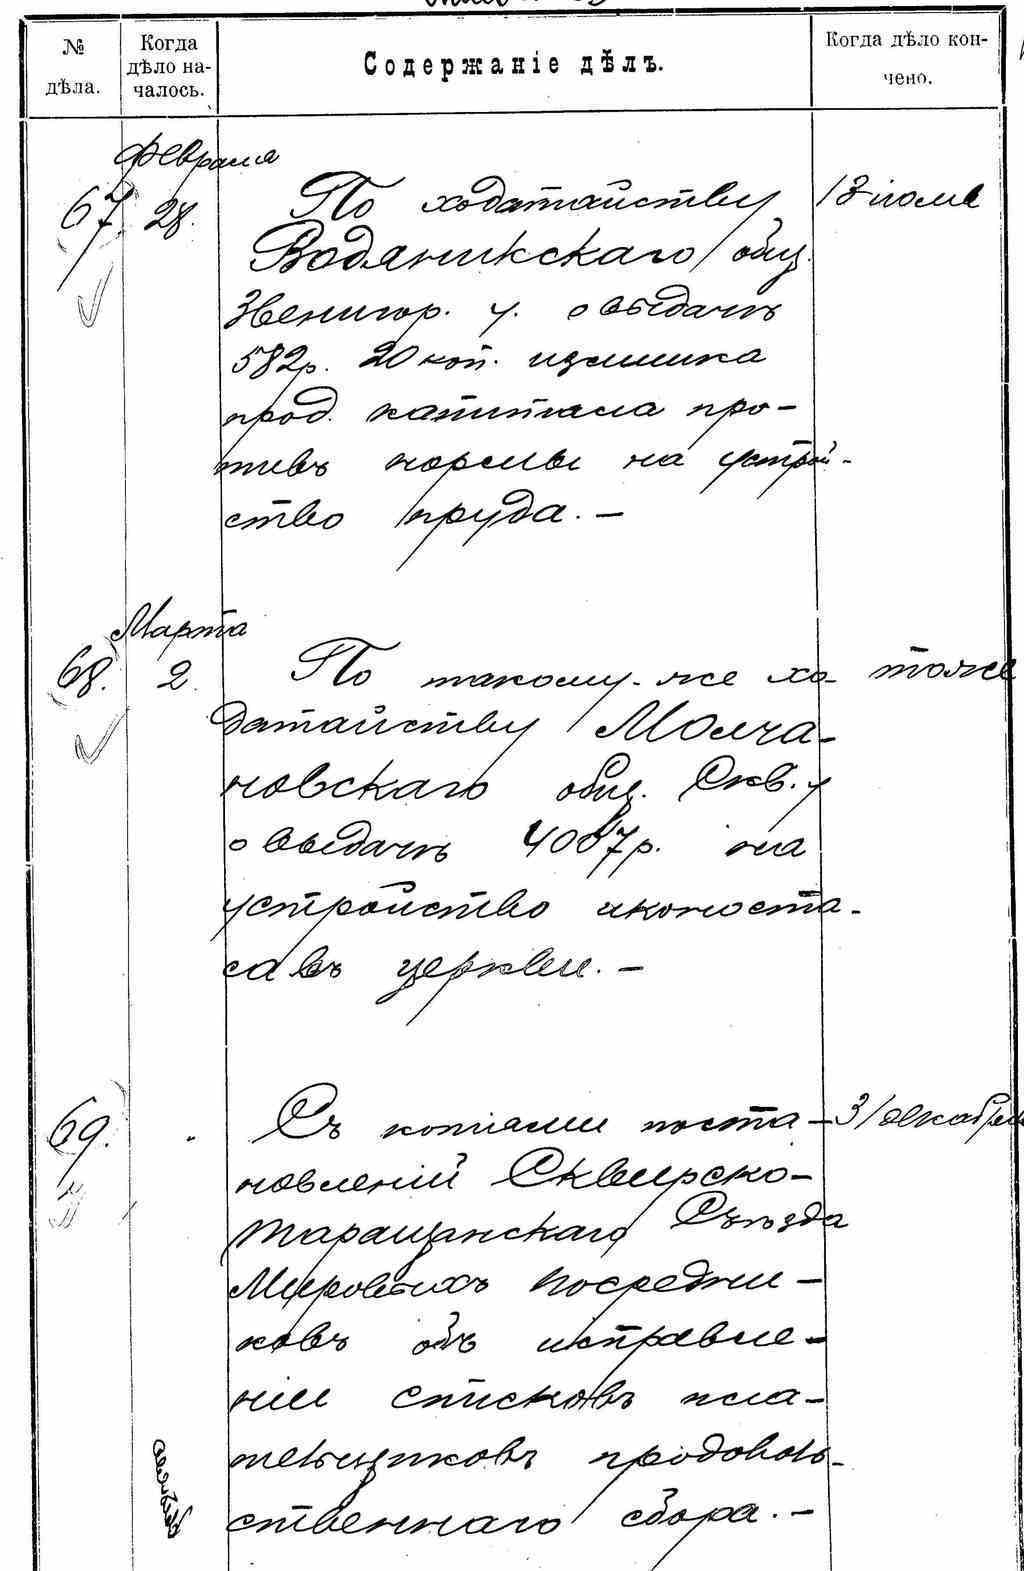 № дѣла.
Когда дѣло началось.
Содержаніе дѣлъ.
Когда дѣло кончено.
Февраля
67 28. По ходатайству 13 іюля
Водяникскаго общ.
Звенигор. у. о выдачѣ
582 р. 20 коп. излишка
прод. капитала про-
тивъ нормы на устрой-
ство пруда. —
Марта
68. 2. По такому-же хо- тоже
датайству Молча-
новскаго общ. Скв. у
о выдачѣ 4087 р. на
устройство иконоста-
са въ церкви. —
69. " Съ копіями поста- 31 декабря
новленій Сквирско-
Таращанскаго Съѣзда
Мировыхъ Посредни-
ковъ объ исправле-
ніи списковъ пла-
тельщиковъ продоволь-
ственнаго сбора. —